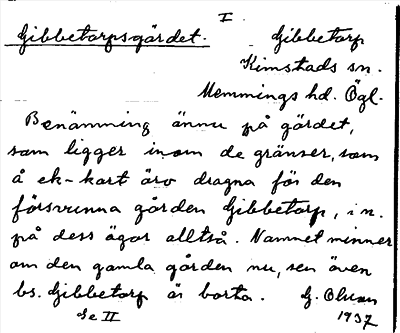 I.
Gibbetorpsgärdet. Gibbetorp
Kimstads sn.
Memmings hd. Ögl.
Benämning ännu på gärdet,
som ligger inom de gränser, som
å ek-kart äro dragna för den
försvunna gården Gibbetorp, i n.
på dess ägor alltså. Namnet minner
om den gamla gården nu, sen även
bs. Gibbetorp är borta. G. Olsson
Se II 1937